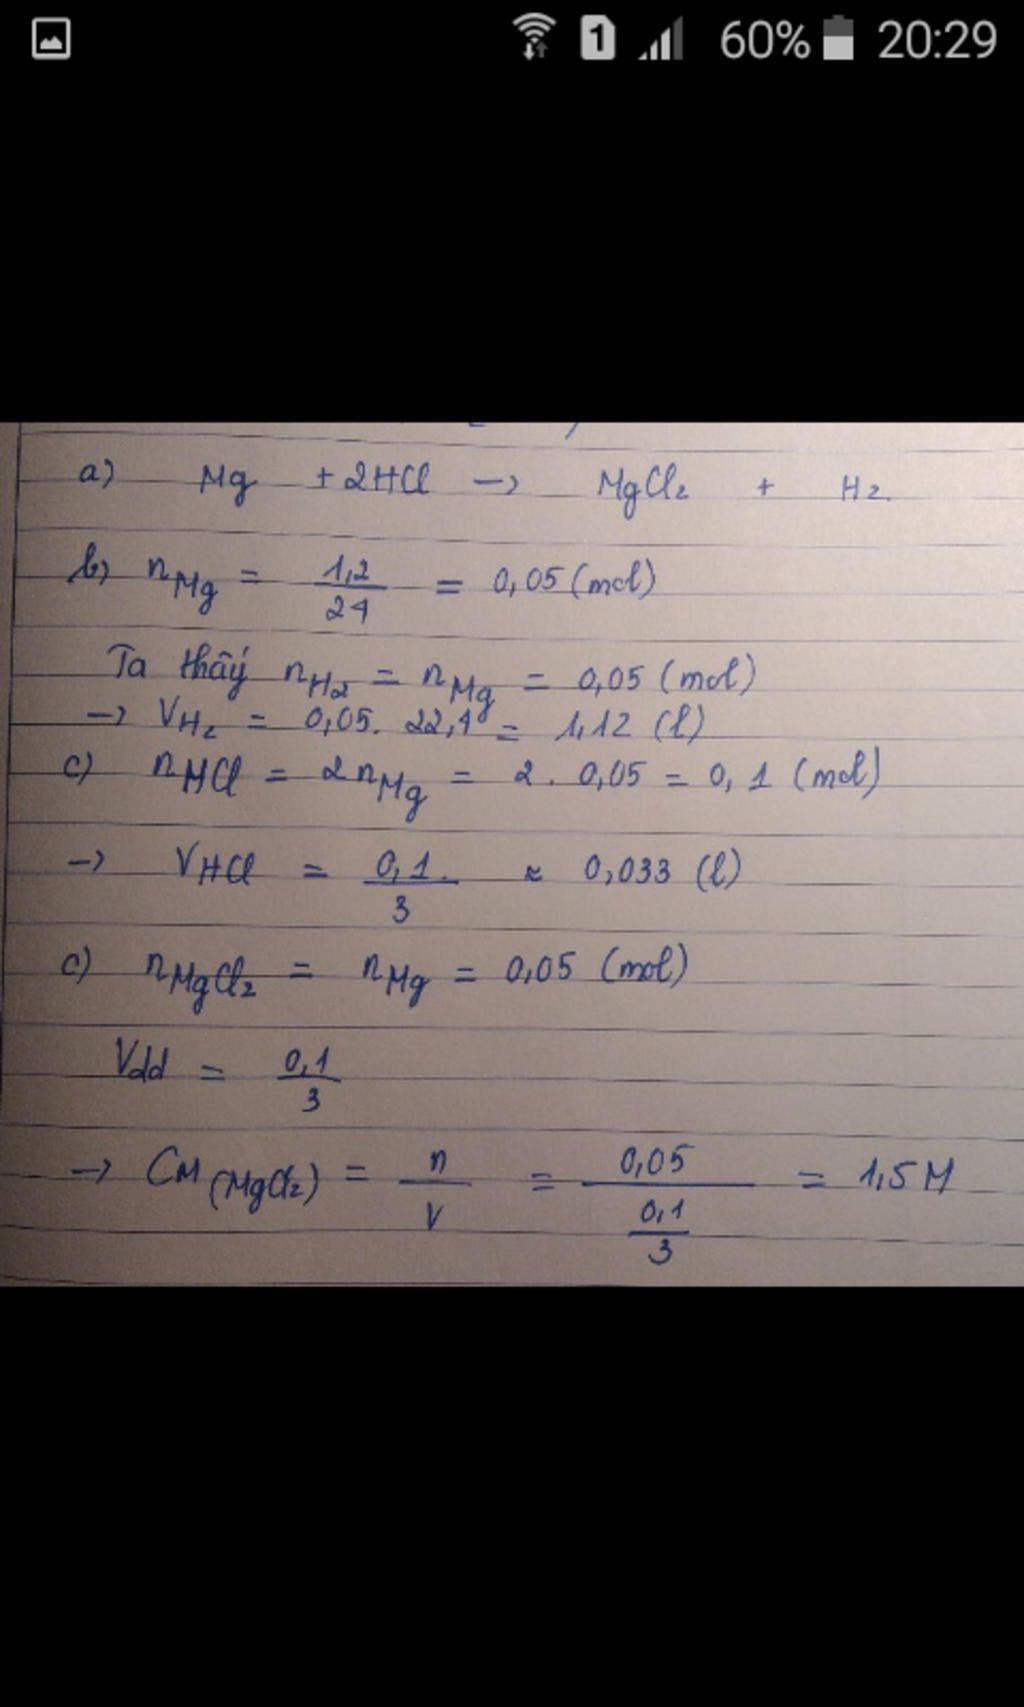 1 60% 20:29
a) Mg + 2HCl → MgCl2 + H2.
b) nMg = 1,2/24 = 0,05 (mol)
Ta thấy nH2 = nMg = 0,05 (mol)
→ VH2 = 0,05. 22,4 = 1,12 (l)
c) nHCl = 2nMg = 2. 0,05 = 0,1 (mol)
→ VHCl = 0,1./3 ≈ 0,033 (l)
c) nMgCl2 = nMg = 0,05 (mol)
Vdd = 0,1/3
→ CM(MgCl2) = n/V = 0,05/(0,1/3) = 1,5M